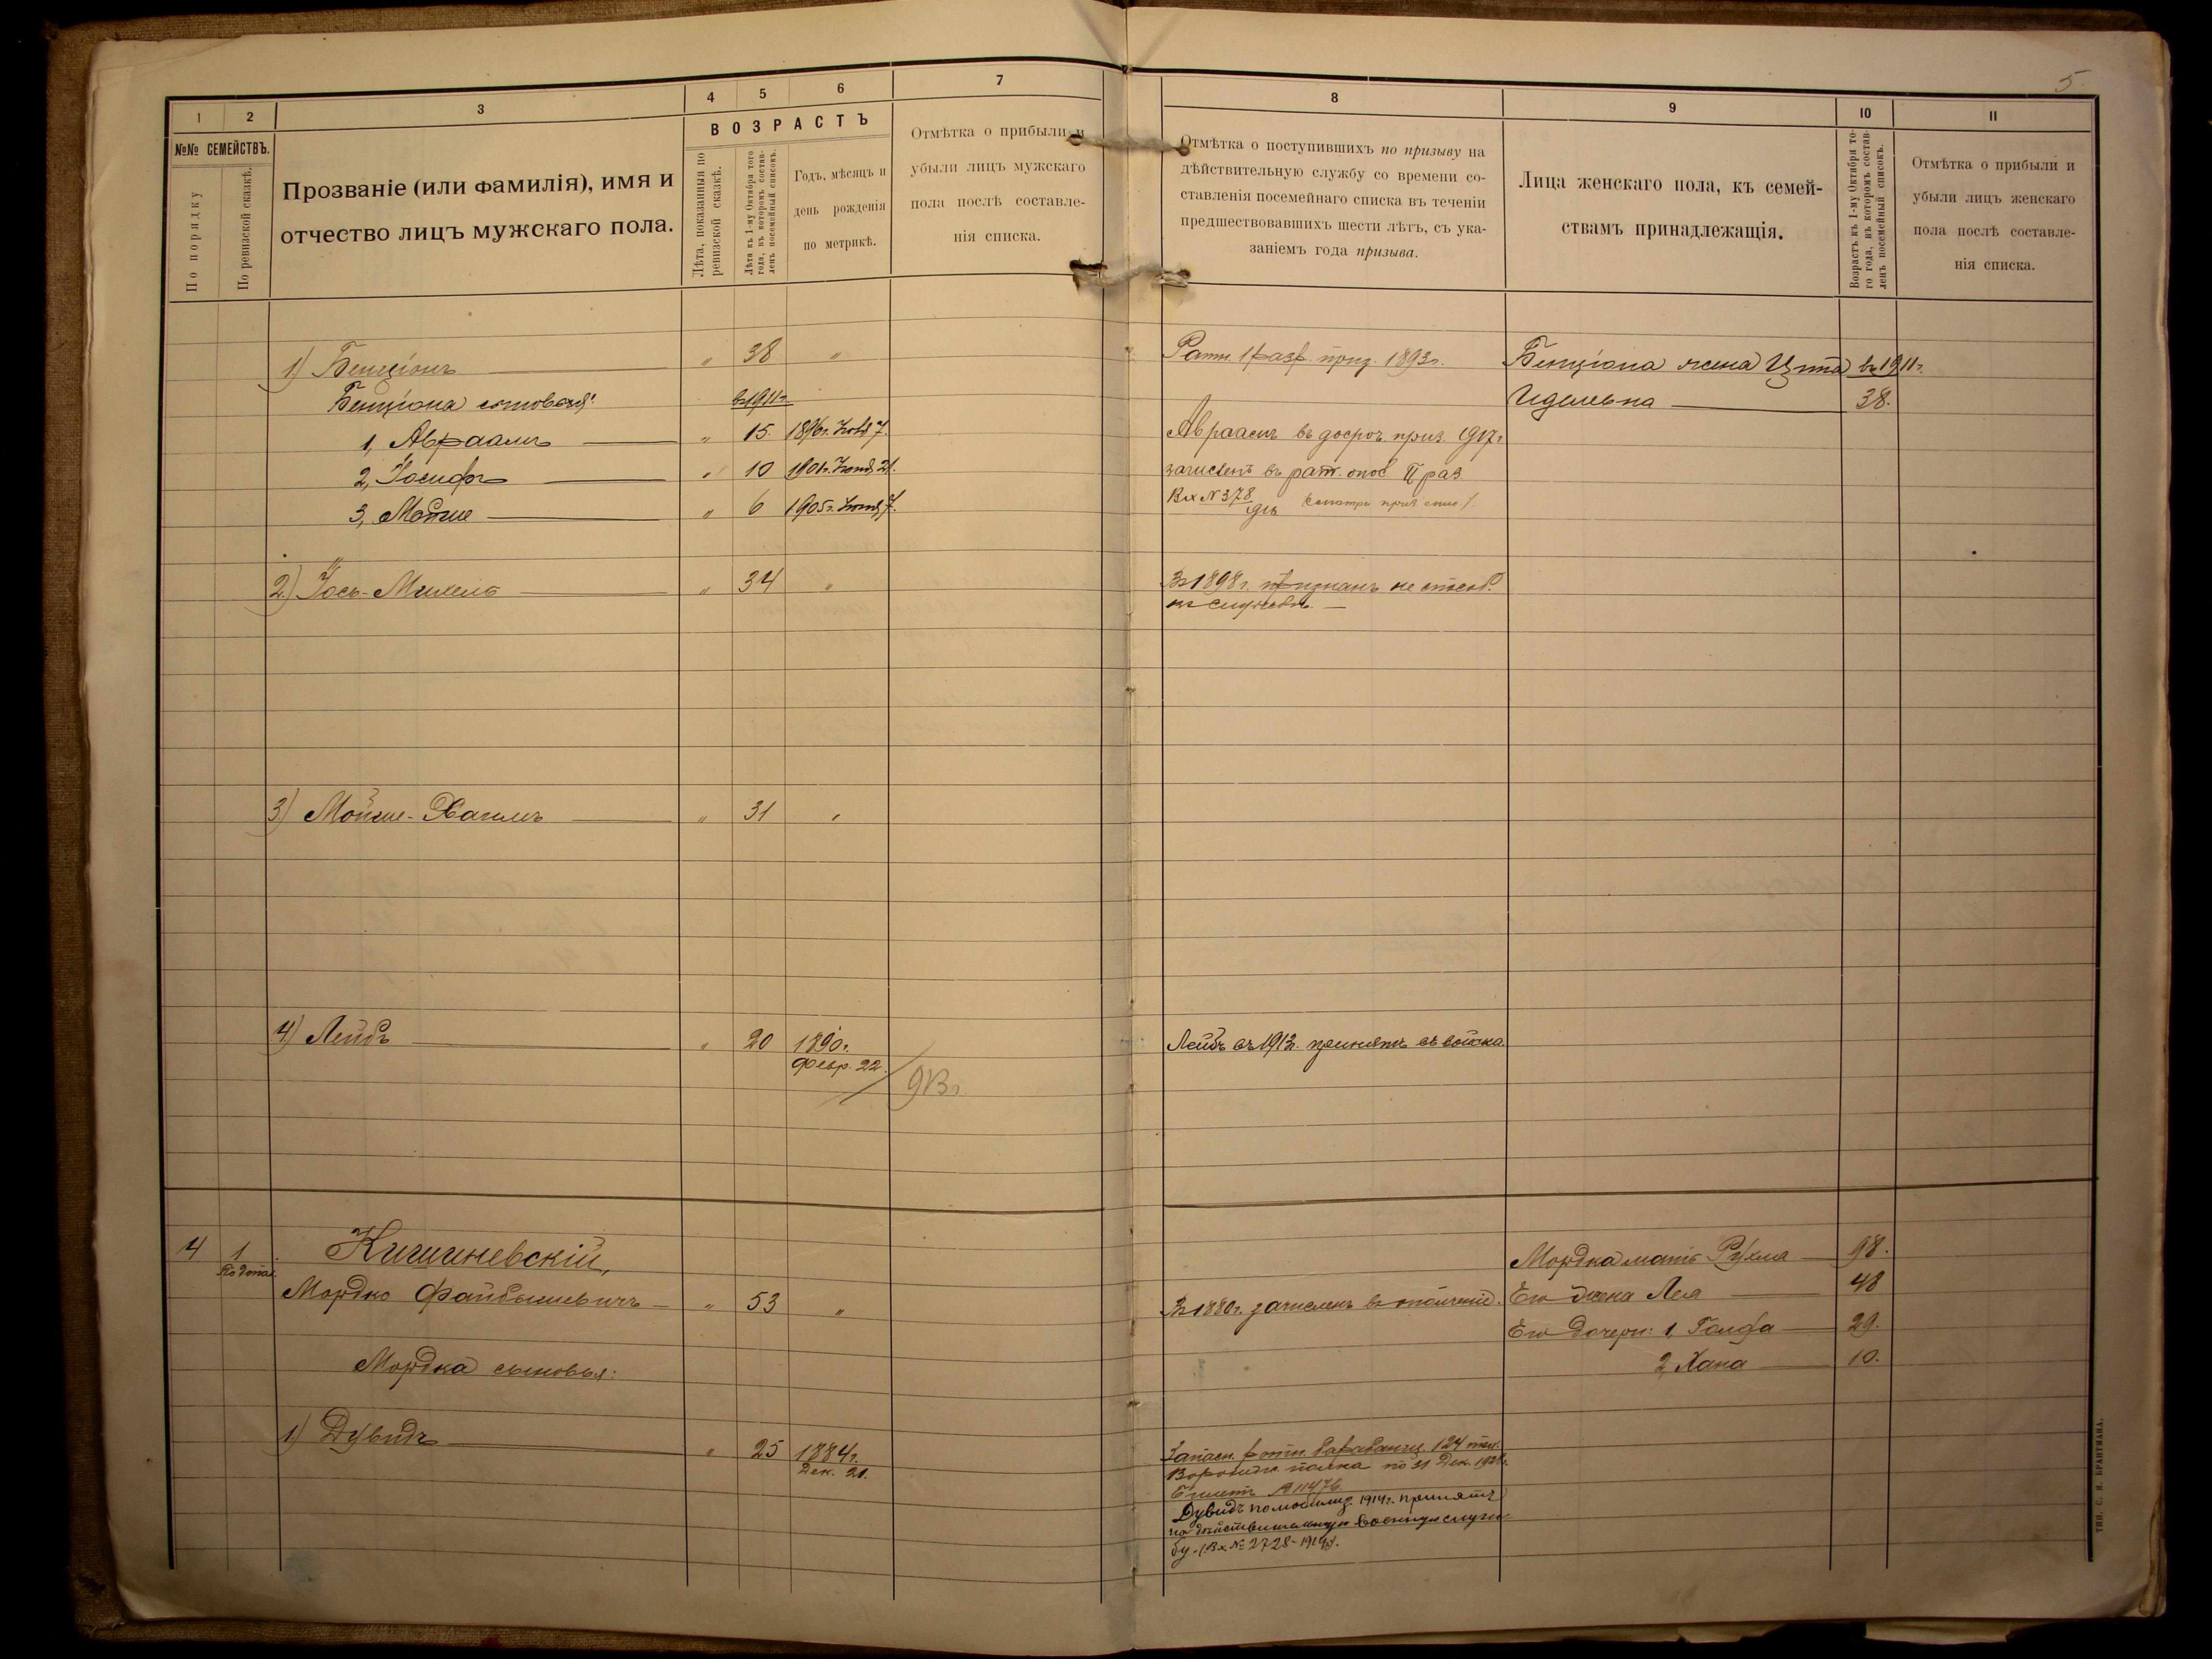 5
1
2
3
4
5
6
7
8
9
10
11
№№ СЕМЕЙСТВЪ.
По порядку
По ревизской сказкѣ.
Прозваніе (или фамилія), имя и
отчество лицъ мужскаго пола.
ВОЗРАСТЪ
Лѣта, показанныя по
ревизской сказкѣ.
Лѣта къ 1-му Октября того
года, въ которомъ состав-
ленъ посемейный списокъ.
Годъ, мѣсяцъ и
день рожденія
по метрикѣ.
Отмѣтка о прибыли и
убыли лицъ мужскаго
пола послѣ составле-
нія списка.
Отмѣтка о поступившихъ по призыву на
дѣйствительную службу со времени со-
ставленія посемейнаго списка въ теченіи
предшествовавшихъ шести лѣтъ, съ ука-
заніемъ года призыва.
Лица женскаго пола, къ семей-
ствамъ принадлежащія.
Возрастъ къ 1-му Октября то-
го года, въ которомъ состав-
ленъ посемейный списокъ.
Отмѣтка о прибыли и
убыли лицъ женскаго
пола послѣ составле-
нія списка.
1) Бенціонъ — „ 38 „
Ратн. 1 разр. приз. 1893г.
Бенціона жена Цита въ 1911г.
Иделевна — 38.
Бенціона сыновья: въ 1911г.
1, Авраамъ — „ 15. 1896г. 7.
2, Іосифъ — „ 10 1901г. 21.
3, Мойше — „ 6 1905г. 7.
Авраамъ въ досроч. приз. 1917г
зачисленъ въ рат. опол. II раз.
Вх № 378
2.) Іось-Михель — „ 34 „
Въ 1898г. признанъ не способ.
къ службѣ. —
3) Мойше-Хаимъ — „ 31 „
4) Лейбъ — „ 20 1890г.
Февр. 22.
913г.
Лейбъ въ 1912г. принятъ въ войска.
4 1
По допол.
Кишиневскій,
Мордко Файбишевичъ — „ 53 „
Въ 1880г. зачисленъ въ ополченіе.
Мордка мать Рухля — 98.
Его жена Лея — 48
Его дочери: 1, Голда — 29.
2, Хана — 10.
Мордка сыновья:
1) Дувидъ — „ 25 1884г.
Дек. 21.
Запасн. ротн. барабанщ. 124 пѣх.
Воронеж. полка по 31 Дек.
Билетъ № 11476.
Дувидъ по мобилиз. 1914г. принятъ
на дѣйствительную военную служ-
бу. (Вх. № 2728-1914г).
ТИП. С. Н. БРАНТМАНА.